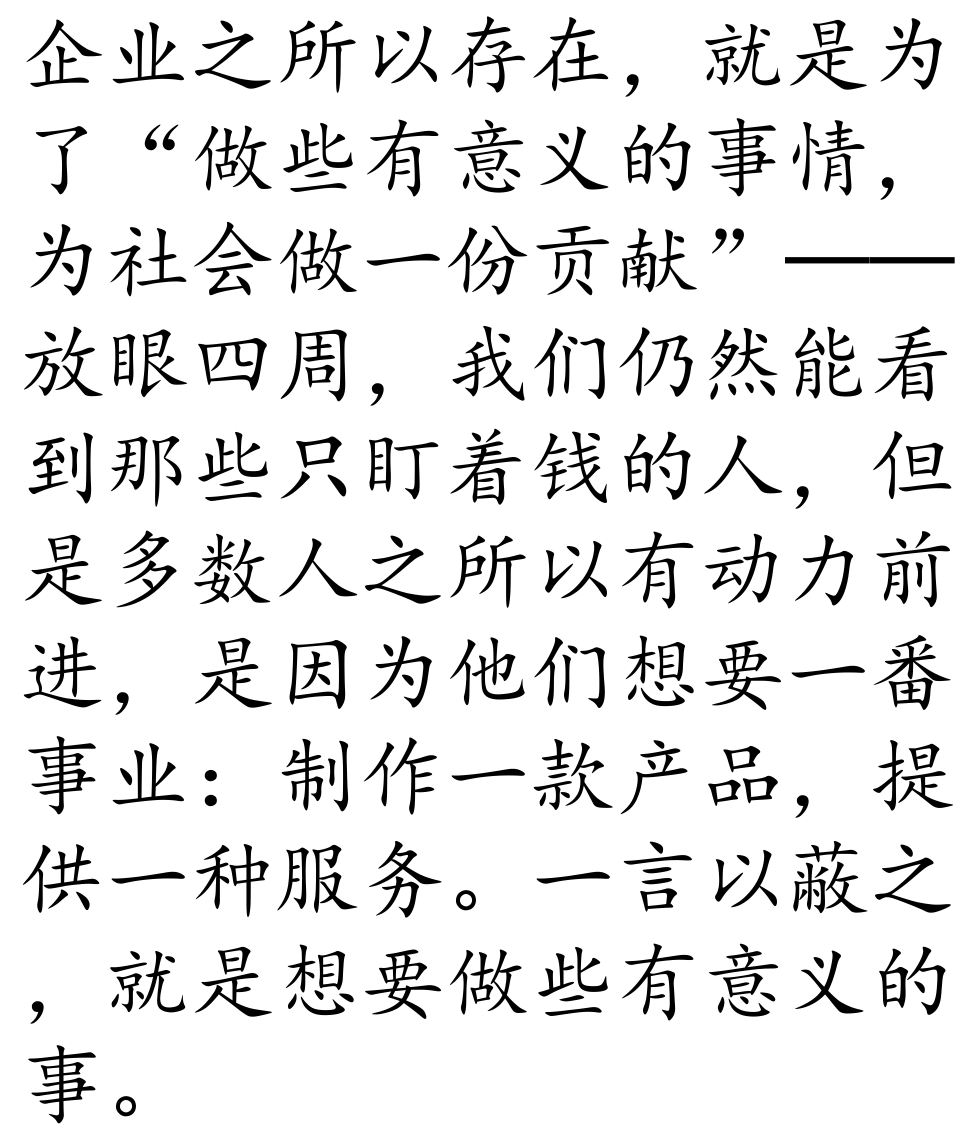 企业之所以存在，就是为
了“做些有意义的事情，
为社会做一份贡献”——
放眼四周，我们仍然能看
到那些只盯着钱的人，但
是多数人之所以有动力前
进，是因为他们想要一番
事业：制作一款产品，提
供一种服务。一言以蔽之
，就是想要做些有意义的
事。